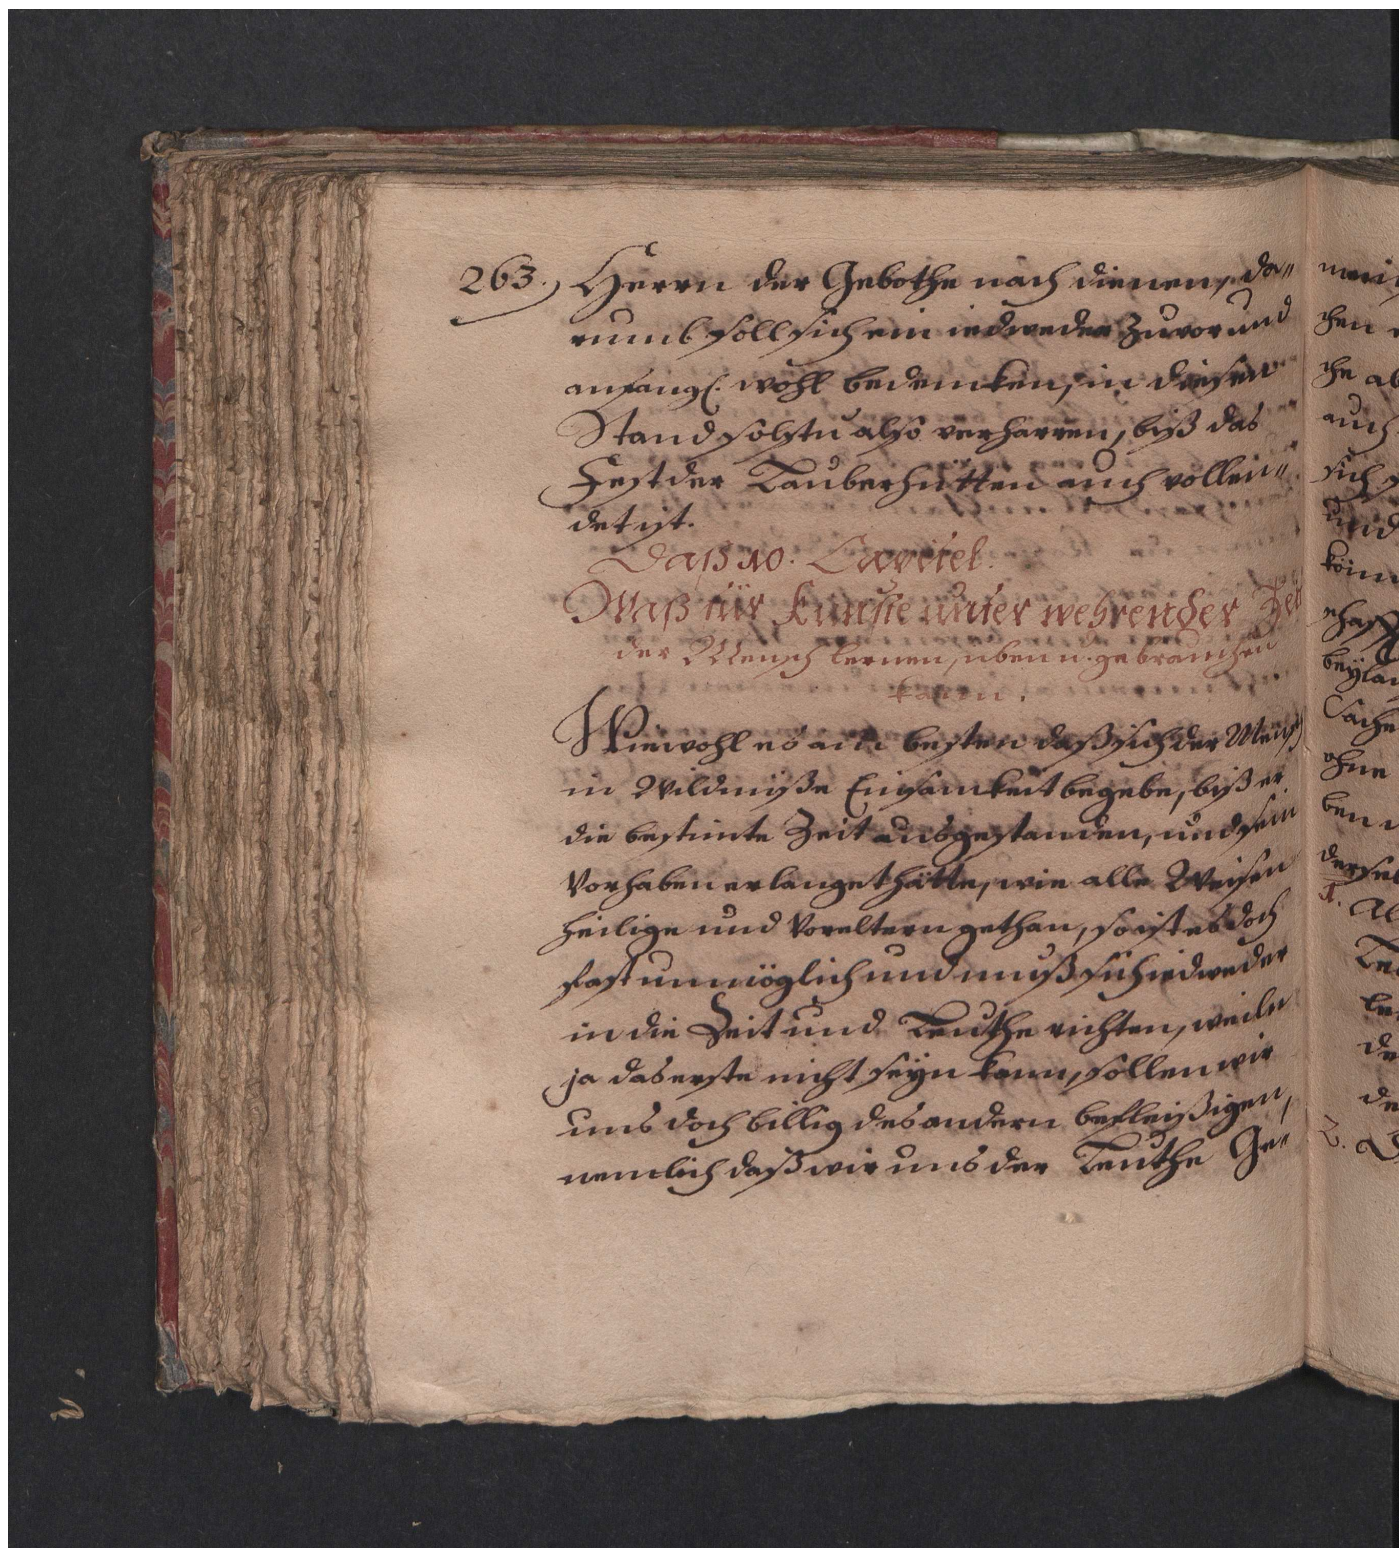 263. Herrn der Gebothe nach dienen, da„
rumb soll sich ein iedweder Zuvor und
anfangs. wohl bedencken, in diesen
Stand solstu also verharren, biß das
Fest der Lauberhütten auch vollen„
det ist.
Daß 10. Capitel.
Waß für Künste unter wehrender Zeit
der Mensch lernen, üben u. gebrauchen
kann.
Wiewohl es am besten daß sich der Mensch
in Wildniße Einsamkeit begebe, biß er
die bestimte Zeit ausgestanden, und sein
Vorhaben erlanget hätte, wie alle Weisen
heilige und Voreltern gethan, so ist es doch
fast unmöglich und muß sich iedweder
in die Zeit und Leuthe richten, weiln
ja das erste nicht seyn kann, sollen wir
uns doch billig des andern befleißigen,
nemlich daß wir uns der Leuthe Ge„
chen
che al
auch
sich
und
beylau
Sache
ohne
ben
dersel
1. Al
de
de
2.